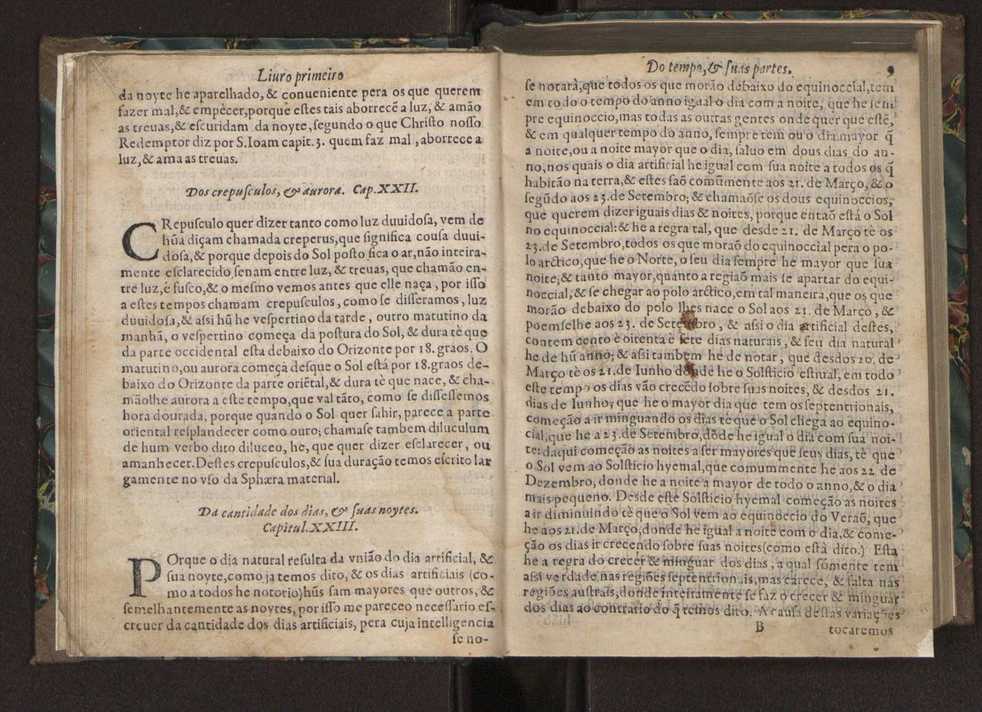 Liuro primeiro
da noyte he aparelhado, & conueniente pera os que querem
fazer mal,& empècer,porque estes tais aborrecẽ a luz, & amão
as treuas,& escuridam da noyte, segundo o que Christo nosso
Redemptor diz por S.Ioam capit.3. quem faz mal , aborrece a
luz,& ama as treuas.
Dos crepusculos, & aurora. Cap.XXII.
CRepusculo quer dizer tanto como luz duuidosa, vem de
hũa diçam chamada creperus,que significa cousa duui-
dosa,& porque depois do Sol posto fica o ar,não inteira-
mente esclarecido,senam entre luz,& treuas, que chamão en-
tre luz,e fusco,& o mesmo vemos antes que elle naça , por isso
a estes tempos chamam crepusculos, como se disseramos, luz
duuidosa,& assi hũ he vespertino da tarde , outro matutino da
manhã, o vespertino começa da postura do Sol, & dura tè que
da parte occidental esta debaixo do Orizonte por 18.graos. O
matutino,ou aurora começa desque o Sol está por 18.graos de-
baixo do Orizonte da parte oriẽtal,& dura tè que nace, & cha-
mãolhe aurora a este tempo,que val tãto, como se dissessemos
hora dourada, porque quando o Sol quer sahir,parece a parte
oriental resplandecer como ouro; chamase tambem diluculum
de hum verbo dito diluceo, he, que quer dizer esclarecer , ou
amanhecer.Destes crepusculos,& sua duração temos escrito lar
gamente no vso da Sphæra material.
Da cantidade dos dias, & suas noytes.
Capitul.XXIII.
POrque o dia natural resulta da vnião do dia artificial, &
sua noyte,como ja temos dito, & os dias artificiais (co-
mo a todos he notorio)hũs sam mayores que outros, &
semelhantemente as noytes, por isso me pareceo necessario es-
creuer da cantidade dos dias artificiais, pera cuja intelligencia
se no-
Do tempo, & suas partes. 9
se notarà,que todos os que morão debaixo do equinoccial,tem
em todo o tempo do anno igual o dia com a noite, que he sem
pre equinoccio,mas todas as outras gentes onde quer que estê,
& em qualquer tempo do anno, sempre tem ou o dia mayor q̃
a noite,ou a noite mayor que o dia, saluo em dous dias do an-
no,nos quais o dia artificial he igual com sua noite a todos os q̃
habitão na terra,& estes saõ comũmente aos 21. de Março,& o
segũdo aos 23.de Setembro; & chamaõse os dous equinoccios,
que querem dizer iguais dias & noites, porque entaõ está o Sol
no equinoccial:& he a regra tal, que desde 21. de Março tè os
23.de Setembro,todos os que moraõ do equinoccial pera o po-
lo arctico,que he o Norte, o seu dia sempre he mayor que sua
noite;& tanto mayor,quanto a regiaõ mais se apartar do equi-
noccial,& se chegar ao polo arctico,em tal maneira,que os que
morão debaixo do polo lhes nace o Sol aos 21. de Março , &
poemselhe aos 23. de Setembro , & assi o dia artificial destes,
contem cento e oitenta e sete dias naturais, & seu dia natural
he de hũ anno; & assi tambem he de notar , que desdos 20. de
Março tè os 21.de Iunho donde he o Solsticio estiual, em todo
este tempo os dias vão crecẽdo sobre suas noites, & desdos 21.
dias de Iunho, que he o mayor dia que tem os septentrionais,
começão a ir minguando os dias tè que o Sol chega ao equino-
cial,que he a 23.de Setembro,dõde he igual o dia com sua noi-
te: daqui começão as noites a ser mayores que seus dias, tè que
o Sol vem ao Solsticio hyemal,que commummente he aos 22 de
Dezembro, donde he a noite a mayor de todo o anno,& o dia
mais pequeno. Desde este Solsticio hyemal começão as noites
a ir diminuindo tè que o Sol vem ao equinoccio do Veraõ, que
he aos 21.de Março,donde he igual a noite com o dia,& come-
ção os dias ir crecendo sobre suas noites(como está dito.) Esta
he a regra do crecer & minguar dos dias , a qual somente tem
assi verdade nas regiões septentrionais,mas carece, & falta nas
regiões austrais,donde inteiramente se faz o crecer & minguar
dos dias ao contrario do q̃ temos dito. A causa destas variações
B tocaremos